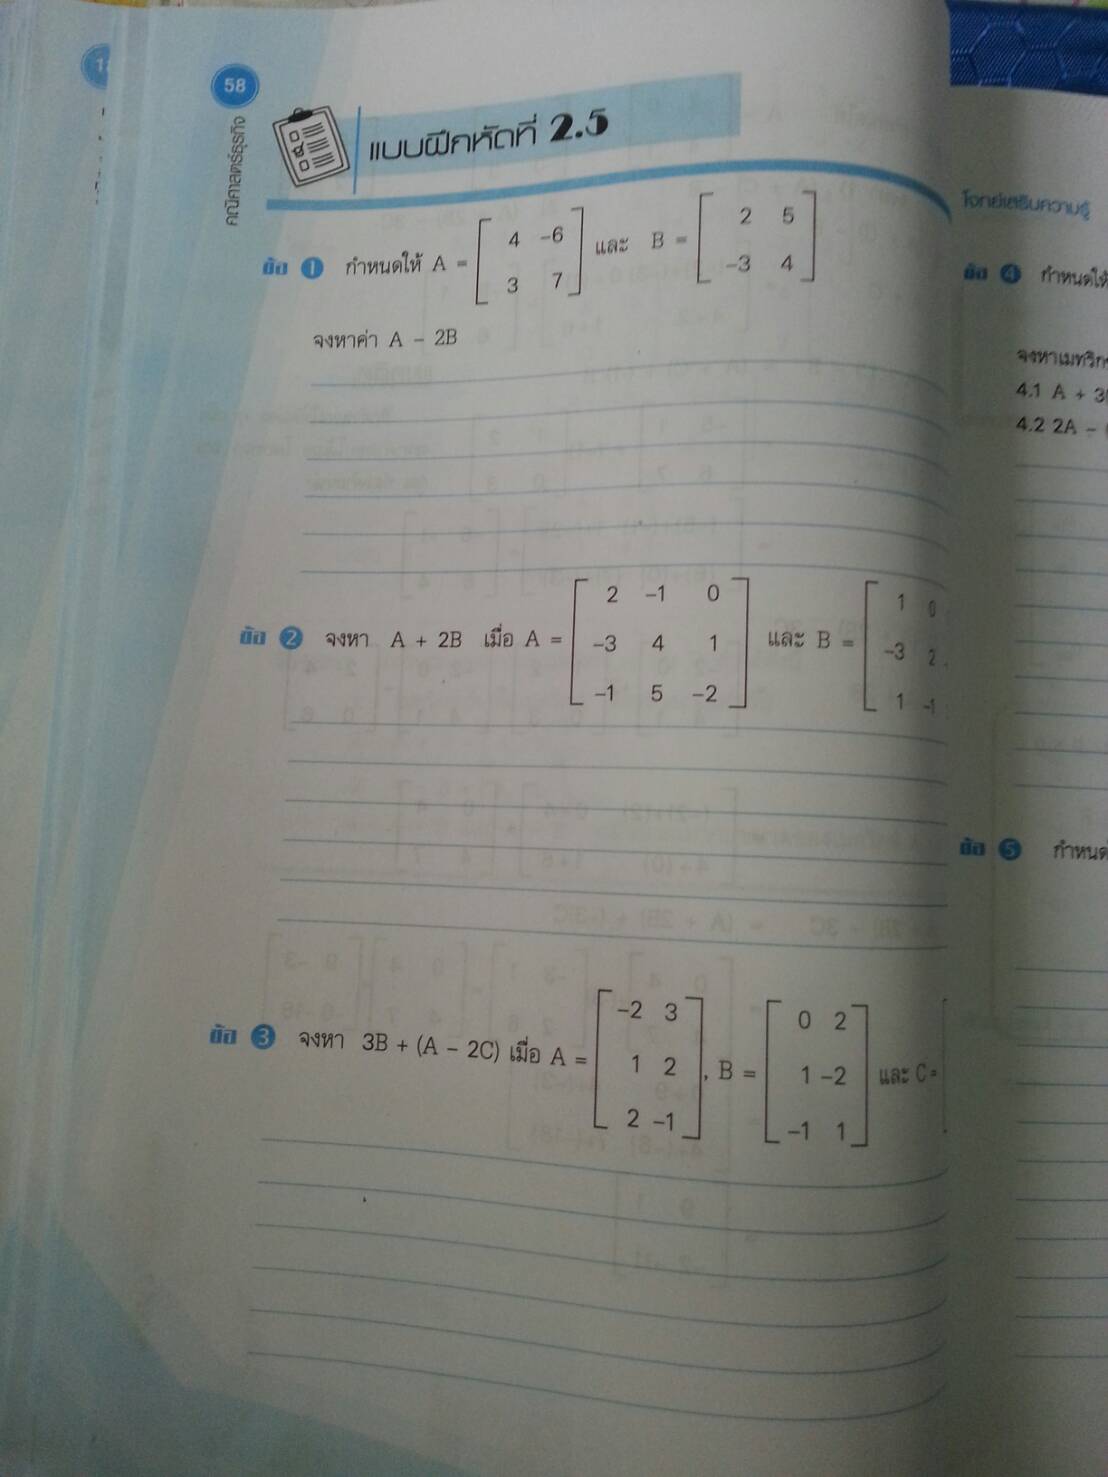 58
คณิตศาสตร์ธุรกิจ
แบบฝึกหัดที่ 2.5
ข้อ 1 กำหนดให้ A = [ 4 -6 ] และ B = [ 2 5 ]
3 7 -3 4
จงหาค่า A - 2B
ข้อ 2 จงหา A + 2B เมื่อ A = [ 2 -1 0 ] และ B = [ 1 0
-3 4 1 -3 2
-1 5 -2 1 -1
ข้อ 3 จงหา 3B + (A - 2C) เมื่อ A = [ -2 3 ] , B = [ 0 2 ] และ C = [
1 2 1 -2
2 -1 -1 1
โจทย์เสริมความรู้
ข้อ 4 กำหนดให้
จงหาเมทริก
4.1 A + 3
4.2 2A -
ข้อ 5 กำหนด